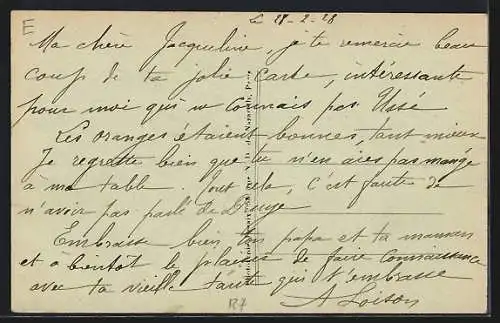 E
Le 28-2-28
Ma chère Jacqueline, je te remercie beau
coup de ta jolie carte, intéressante
pour moi qui ne connais pas Ussé
Les oranges étaient bonnes, tant mieux
Je regrette bien que tu n'en aies pas mangé
à ma table. Tout cela, c'est faute de
n'avoir pas parlé de
Embrasse bien ton papa et ta maman
et à bientôt le plaisir de faire connaissance
avec ta vieille tante qui t'embrasse
A Loison